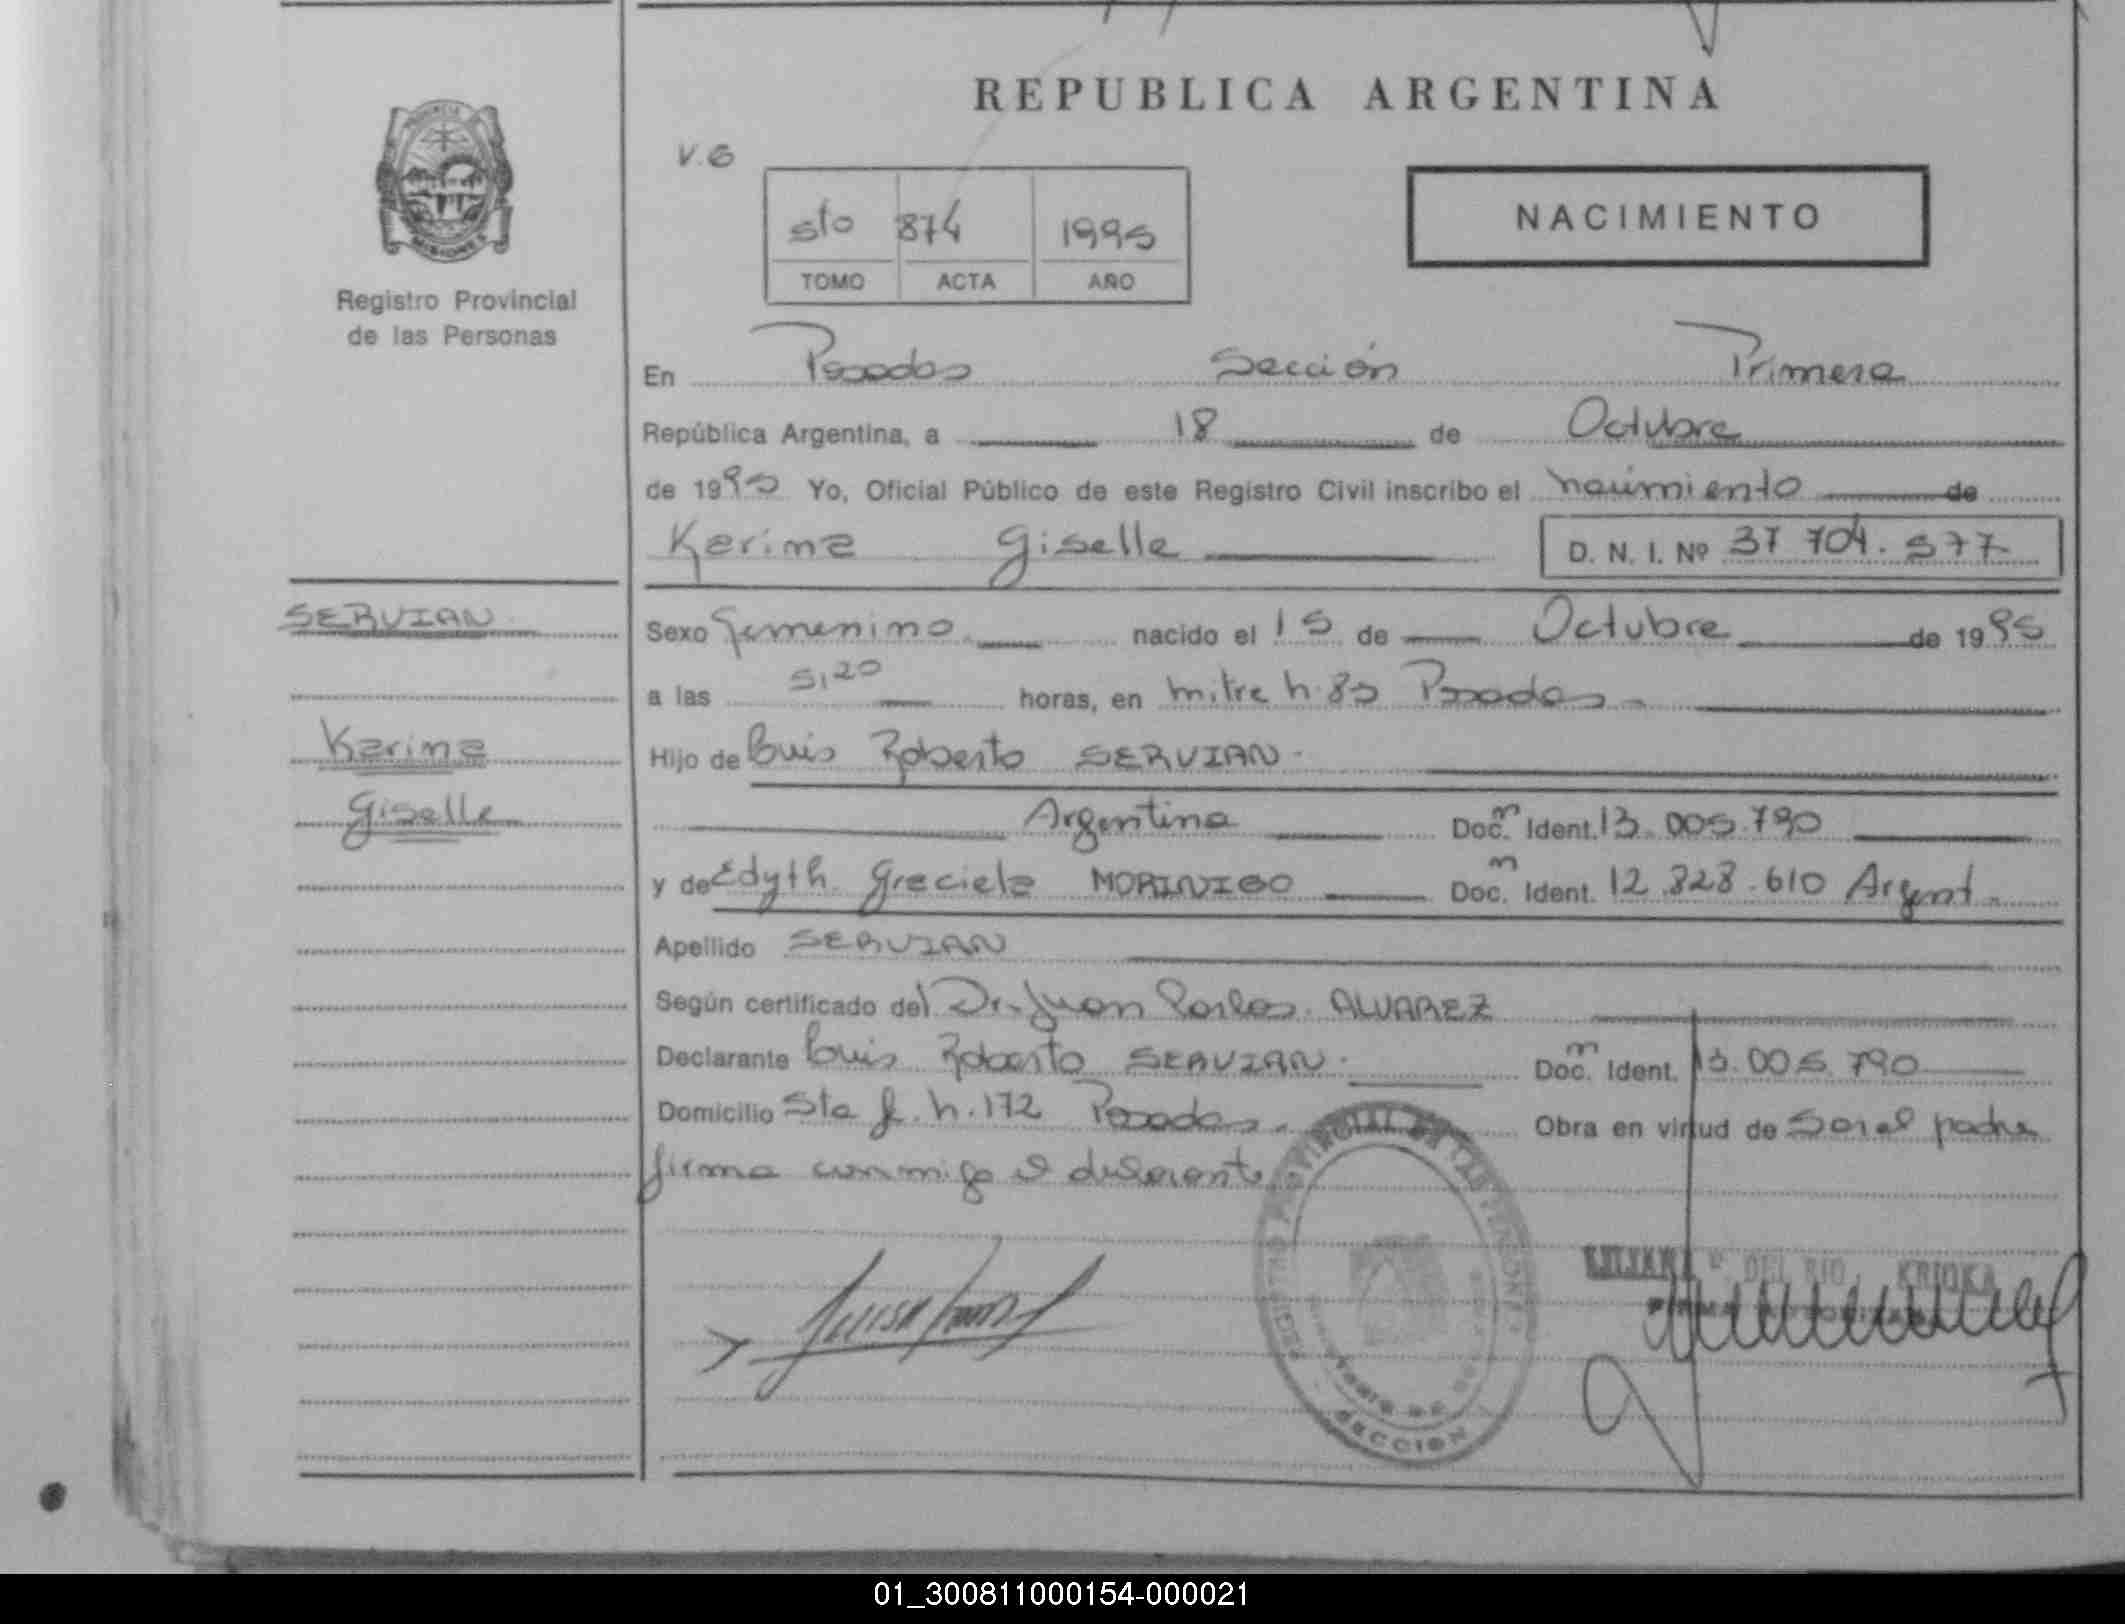 REPUBLICA ARGENTINA
V.G
NACIMIENTO
5to 874 1995
TOMO ACTA AÑO
MISIONES
Registro Provincial
de las Personas
En Posadas Sección Primera
República Argentina, a 18 de Octubre
de 1995 Yo, Oficial Público de este Registro Civil inscribo el nacimiento de
Karina Giselle D. N. I. Nº 37 704.577
SERVIAN
Sexo Femenino nacido el 15 de Octubre de 1995
a las 5,20 horas, en Mitre n. 85 Posadas
Karina
Hijo de Luis Roberto SERVIAN
Giselle
Argentina Doc. Ident. 13.005.790
y de Edyth Graciela MORINIGO Doc. Ident. 12.828.610 Argent.
Apellido SERVIAN
Según certificado del Dr. Juan Carlos ALVAREZ
Declarante Luis Roberto SERVIAN Doc. Ident. 13.005.790
Domicilio Sta f. n. 172 Posadas. Obra en virtud de Ser el padre
firma conmigo el declarante
LILIANA DEL RIO KRIOKA
SECCION
01_300811000154-000021